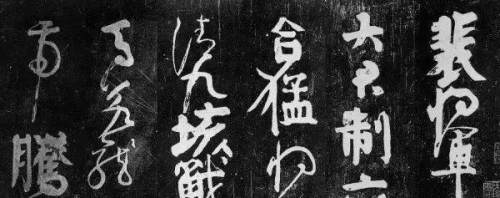 裴将軍
大君制六
合猛将
清九垓戰
馬若龍
虎騰